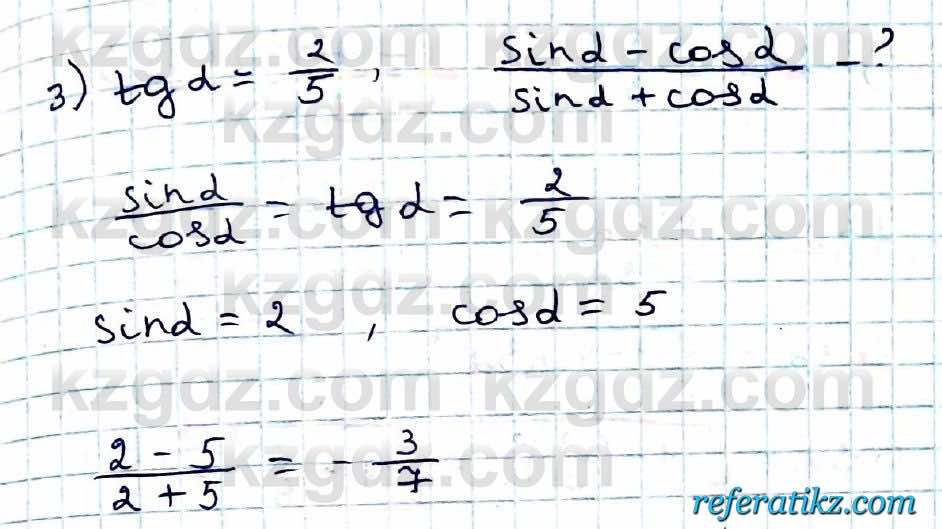 kzgdz.com kzgdz.com
3) tg α = 2/5 , (sin α - cos α)/(sin α + cos α) - ?
kzgdz.com
sin α/cos α = tg α = 2/5
kzgdz.com kzgdz.com
kzgdz.com
sin α = 2 , cos α = 5
kzgdz.com kzgdz.com
(2 - 5)/(2 + 5) = - 3/7
kzgdz.com
referatikz.com